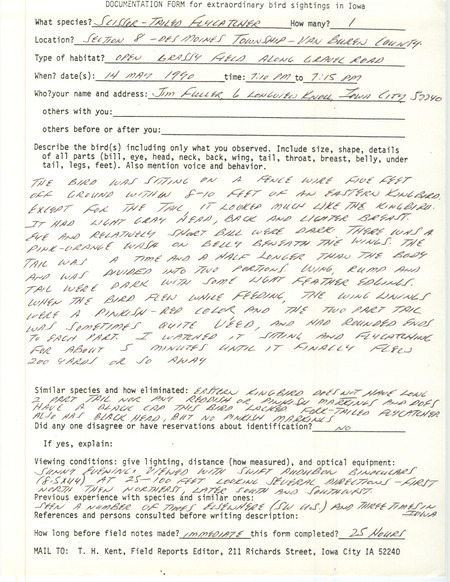 DOCUMENTATION FORM for extraordinary bird sightings in Iowa
What species? SCISSOR-TAILED FLYCATCHER How many? 1
Location? SECTION 8 - DES MOINES TOWNSHIP - VAN BUREN COUNTY
Type of habitat? OPEN GRASSY FIELD ALONG GRAVEL ROAD
When? date(s): 14 MAY 1990 time: 7:10 PM to 7:15 PM
Who? your name and address: JIM FULLER 6 LONGVIEW KNOLL IOWA CITY 52240
others with you:
others before or after you:
Describe the bird(s) including only what you observed. Include size, shape, details
of all parts (bill, eye, head, neck, back, wing, tail, throat, breast, belly, under
tail, legs, feet). Also mention voice and behavior.
THE BIRD WAS SITTING ON A FENCE WIRE FIVE FEET
OFF GROUND WITHIN 8-10 FEET OF AN EASTERN KINGBIRD.
EXCEPT FOR THE TAIL, IT LOOKED MUCH LIKE THE KINGBIRD.
IT HAD LIGHT GRAY HEAD, BACK AND LIGHTER BREAST.
EYE AND RELATIVELY SHORT BILL WERE DARK. THERE WAS A
PINK-ORANGE WASH ON BELLY BENEATH THE WINGS. THE
TAIL WAS A TIME AND A HALF LONGER THAN THE BODY
AND WAS DIVIDED INTO TWO PORTIONS. WING, RUMP AND
TAIL WERE DARK WITH SOME LIGHT FEATHER EDGINGS.
WHEN THE BIRD FLEW WHILE FEEDING, THE WING LININGS
WERE A PINKISH-RED COLOR AND THE TWO PART TAIL
WAS SOMETIMES QUITE VEED, AND HAD ROUNDED ENDS
TO EACH PART. I WATCHED IT SITTING AND FLYCATCHING
FOR ABOUT 5 MINUTES UNTIL IT FINALLY FLEW
200 YARDS OR SO AWAY
Similar species and how eliminated: EASTERN KINGBIRD DOES NOT HAVE LONG
2 PART TAIL NOR ANY REDDISH OR PINKISH MARKINGS AND DOES
HAVE A BLACK CAP THIS BIRD LACKED. FORK-TAILED FLYCATCHER
ALSO HAS BLACK HEAD, BUT NO PINKISH MARKINGS
Did any one disagree or have reservations about identification? NO
If yes, explain:
Viewing conditions: give lighting, distance (how measured), and optical equipment:
SUNNY EVENING: VIEWED WITH SWIFT AUDUBON BINOCULARS
(8.5X44) AT 25-100 FEET LOOKING SEVERAL DIRECTIONS - FIRST
NORTH THEN NORTHEAST, LATER SOUTH AND SOUTHWEST.
Previous experience with species and similar ones:
SEEN A NUMBER OF TIMES ELSEWHERE (SW U.S.) AND THREE TIMES IN IOWA
References and persons consulted before writing description:
How long before field notes made? IMMEDIATE this form completed? 25 HOURS
MAIL TO: T. H. Kent, Field Reports Editor, 211 Richards Street, Iowa City IA 52240